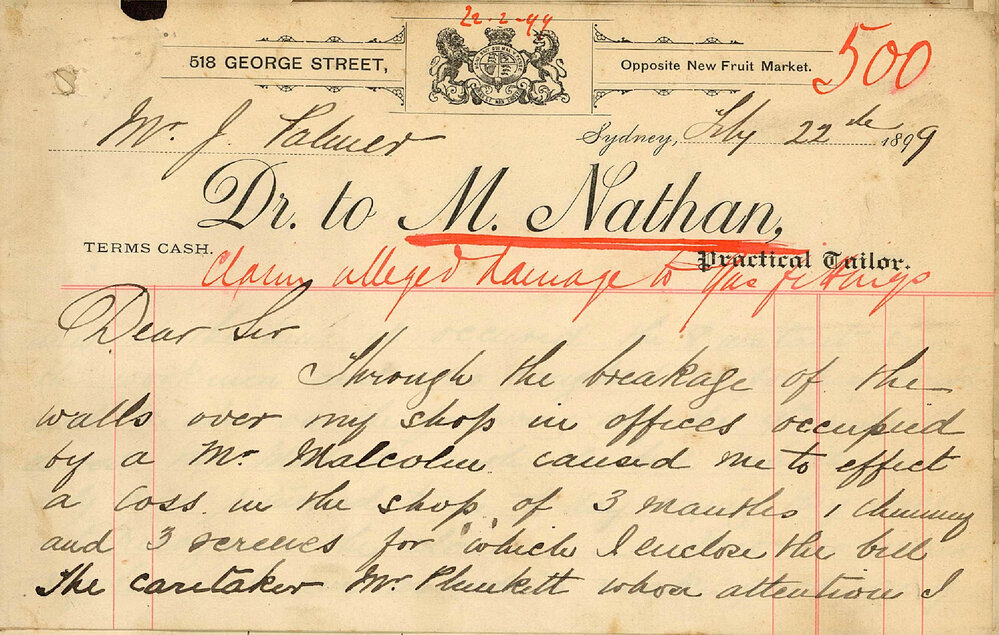 22-2-99
518 GEORGE STREET,
Opposite New Fruit Market.
500
Mr. J. Palmer
Sydney, Feby 22nd 1899
Dr. to M. Nathan,
TERMS CASH.
Practical Tailor.
Claim alleged damage to Gas fittings
Dear Sir
Through the breakage of the
walls over my shop in offices occupied
by a Mr Malcolm caused me to effect
a loss in the shop of 3 mantles 1 chimney
and 3 screws for which I enclose the bill
the caretaker Mr Plunkett whose attention I